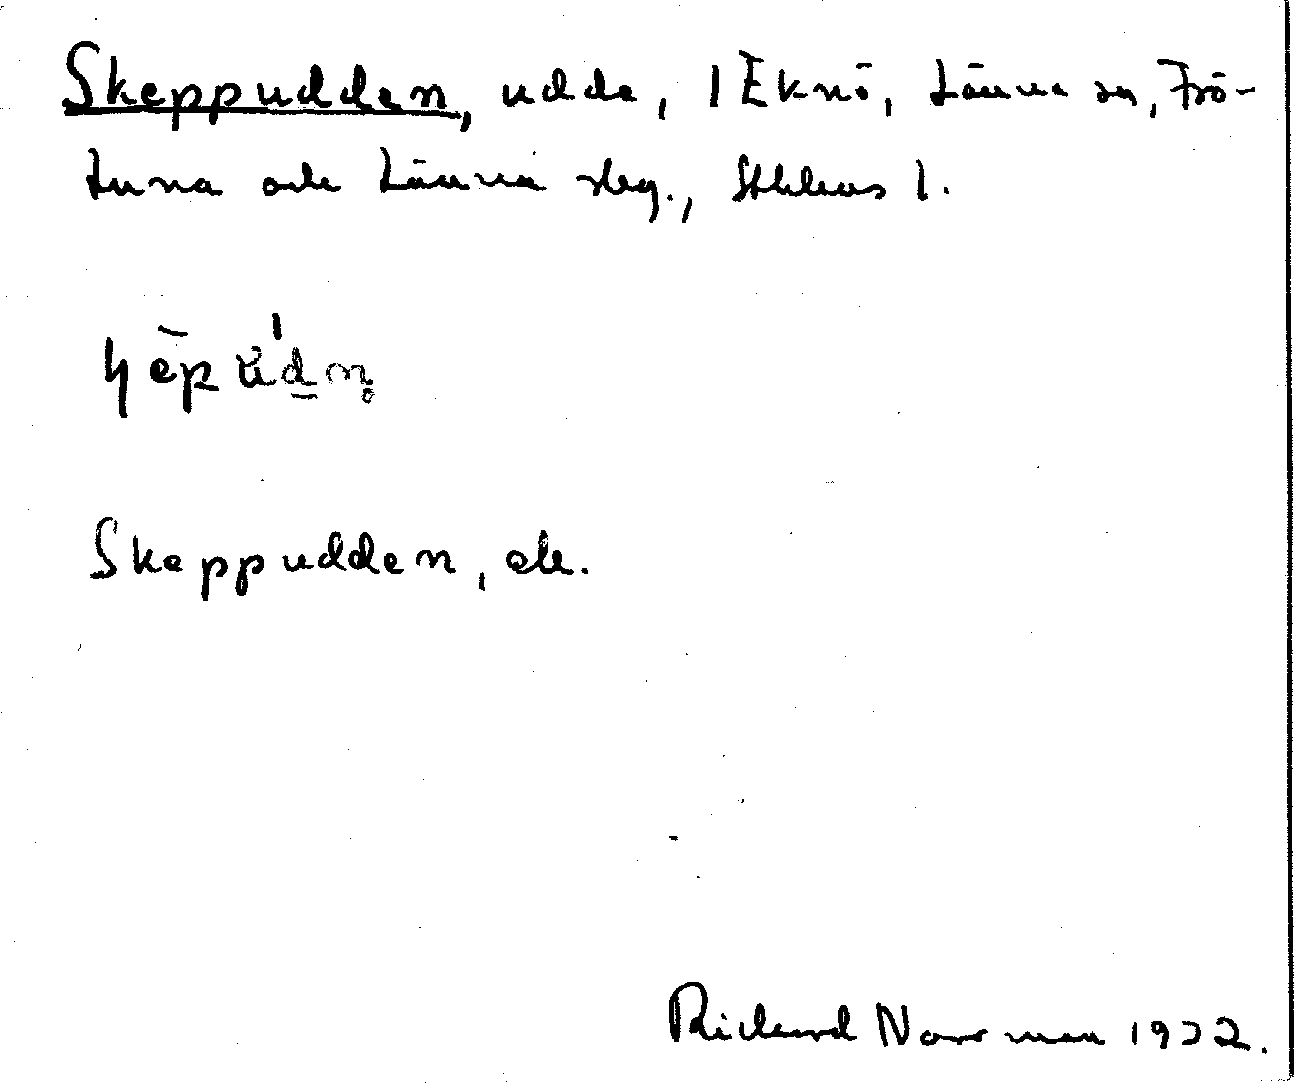 Skeppudden, udde, 1 Eknö, Länna sn, Frö-
tuna och Länna slg., Sthlms l.
Skeppudden, ek.
Rickard Norrman 1932.